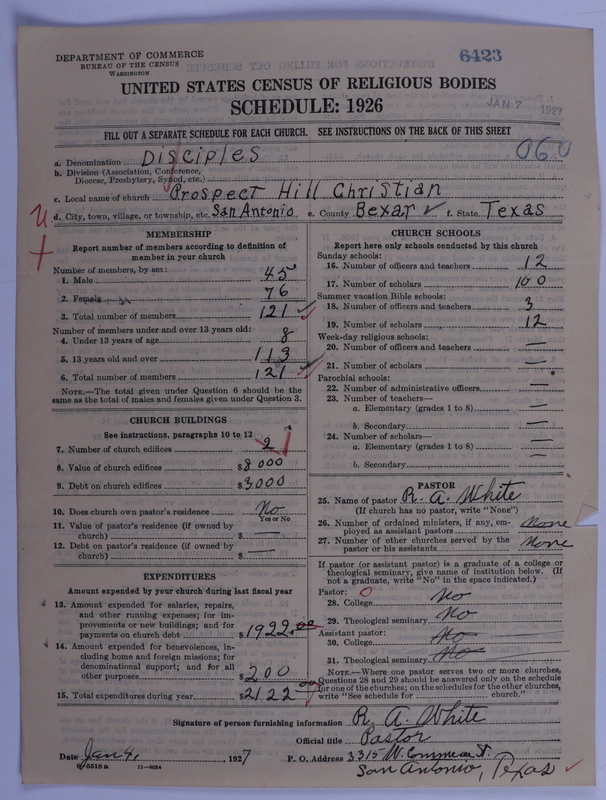 DEPARTMENT OF COMMERCE
BUREAU OF THE CENSUS
WASHINGTON
6423
UNITED STATES CENSUS OF RELIGIOUS BODIES
SCHEDULE: 1926
JAN 7 1927
FILL OUT A SEPARATE SCHEDULE FOR EACH CHURCH. SEE INSTRUCTIONS ON THE BACK OF THIS SHEET
060
a. Denomination Disciples
b. Division (Association, Conference,
Diocese, Presbytery, Synod, etc.)
c. Local name of church Prospect Hill Christian
d. City, town, village, or township, etc. San Antonio e. County Bexar f. State Texas
MEMBERSHIP
Report number of members according to definition of
member in your church
Number of members, by sex:
1. Male 45
2. Female 76
3. Total number of members 121
Number of members under and over 13 years old:
4. Under 13 years of age 8
5. 13 years old and over 113
6. Total number of members 121
NOTE.—The total given under Question 6 should be the
same as the total of males and females given under Question 3.
CHURCH BUILDINGS
See instructions, paragraphs 10 to 12
7. Number of church edifices 2 1
8. Value of church edifices $8000
9. Debt on church edifices $3000
10. Does church own pastor's residence No
Yes or No
11. Value of pastor's residence (if owned by
church) $ —
12. Debt on pastor's residence (if owned by
church) $ —
EXPENDITURES
Amount expended by your church during last fiscal year
13. Amount expended for salaries, repairs,
and other running expenses; for im-
provements or new buildings; and for
payments on church debt $1922.00
14. Amount expended for benevolences, in-
cluding home and foreign missions; for
denominational support; and for all
other purposes $200
15. Total expenditures during year $2122.00
CHURCH SCHOOLS
Report here only schools conducted by this church
Sunday schools:
16. Number of officers and teachers 12
17. Number of scholars 100
Summer vacation Bible schools:
18. Number of officers and teachers 3
19. Number of scholars 12
Week-day religious schools:
20. Number of officers and teachers —
21. Number of scholars —
Parochial schools:
22. Number of administrative officers —
23. Number of teachers—
a. Elementary (grades 1 to 8) —
b. Secondary —
24. Number of scholars—
a. Elementary (grades 1 to 8) —
b. Secondary —
PASTOR
25. Name of pastor R. A. White
(If church has no pastor, write "None")
26. Number of ordained ministers, if any, em-
ployed as assistant pastors None
27. Number of other churches served by the
pastor or his assistants None
If pastor (or assistant pastor) is a graduate of a college or
theological seminary, give name of institution below. (If
not a graduate, write "No" in the space indicated.)
Pastor: 0
28. College No
29. Theological seminary No
Assistant pastor:
30. College No
31. Theological seminary No
NOTE.—Where one pastor serves two or more churches,
Questions 28 and 29 should be answered only on the schedule
for one of the churches; on the schedules for the other churches,
write "See schedule for church."
Signature of person furnishing information R. A. White
Official title Pastor
Date Jan 4, 1927 P. O. Address 3315 W. Commerce St.
8—5518a 11—9054
San Antonio, Texas